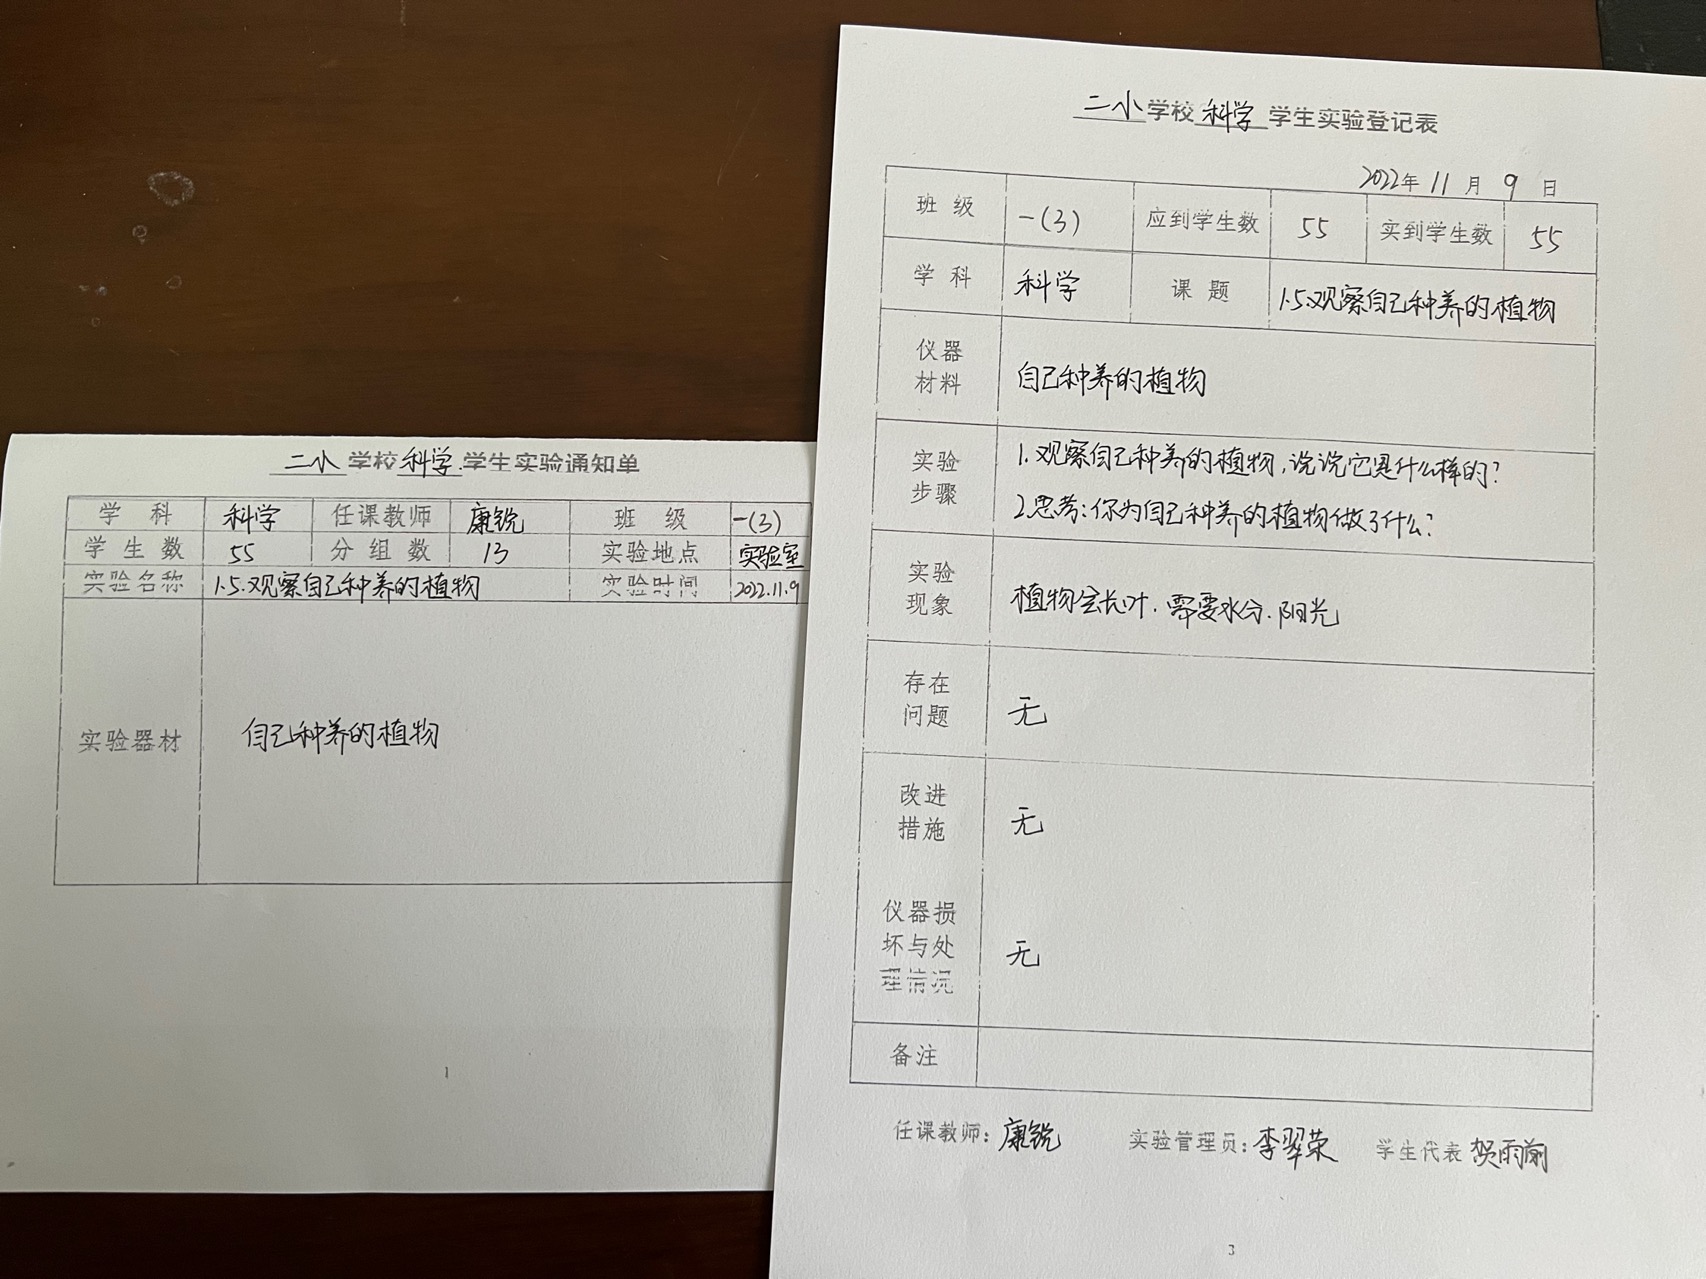 二小学校科学学生实验通知单
学科 科学 任课教师 康锐 班级 一(3)
学生数 55 分组数 13 实验地点 实验室
实验名称 1.5.观察自己种养的植物 实验时间 2022.11.9
实验器材 自己种养的植物
1
二小学校科学学生实验登记表
2022年11月9日
班级 一(3) 应到学生数 55 实到学生数 55
学科 科学 课题 1.5.观察自己种养的植物
仪器
材料
自己种养的植物
实验
步骤
1.观察自己种养的植物,说说它是什么样的?
2.思考:你为自己种养的植物做了什么?
实验
现象
植物会长叶.需要水分.阳光
存在
问题
无
改进
措施
无
仪器损
坏与处
理情况
无
备注
任课教师:康锐 实验管理员:李翠荣 学生代表 贺雨
3